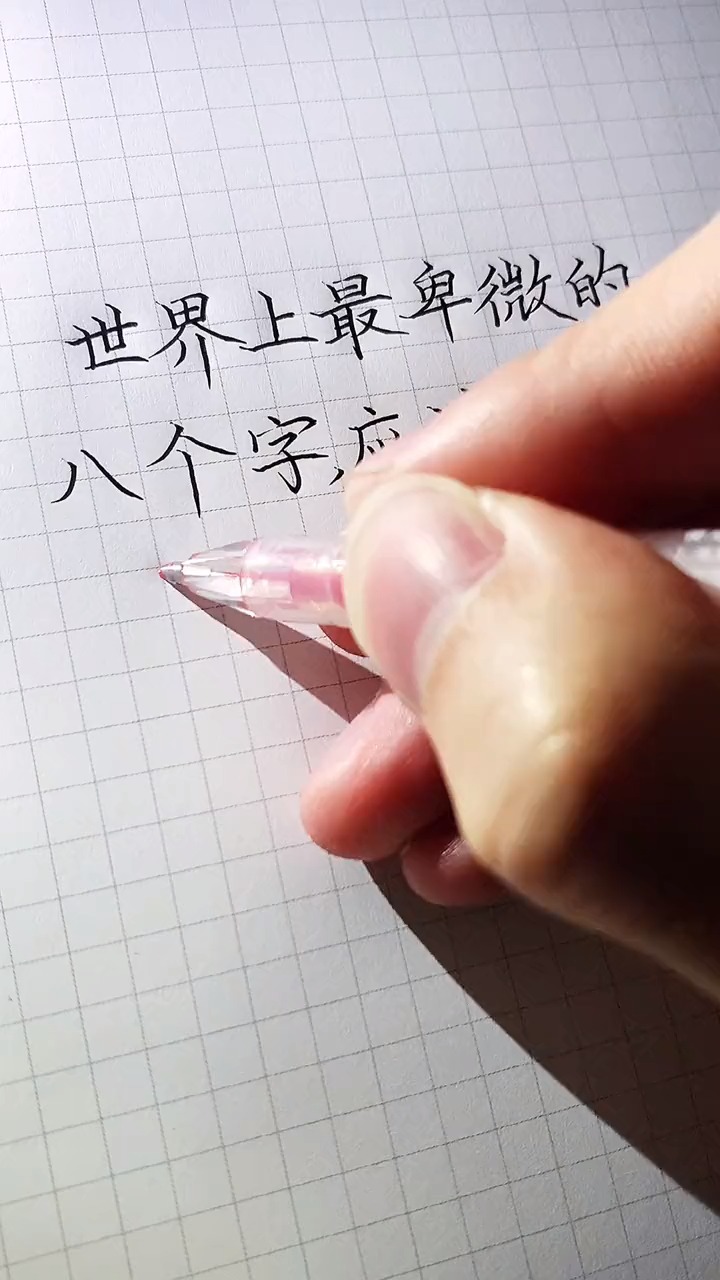 世界上最卑微的
八个字,应